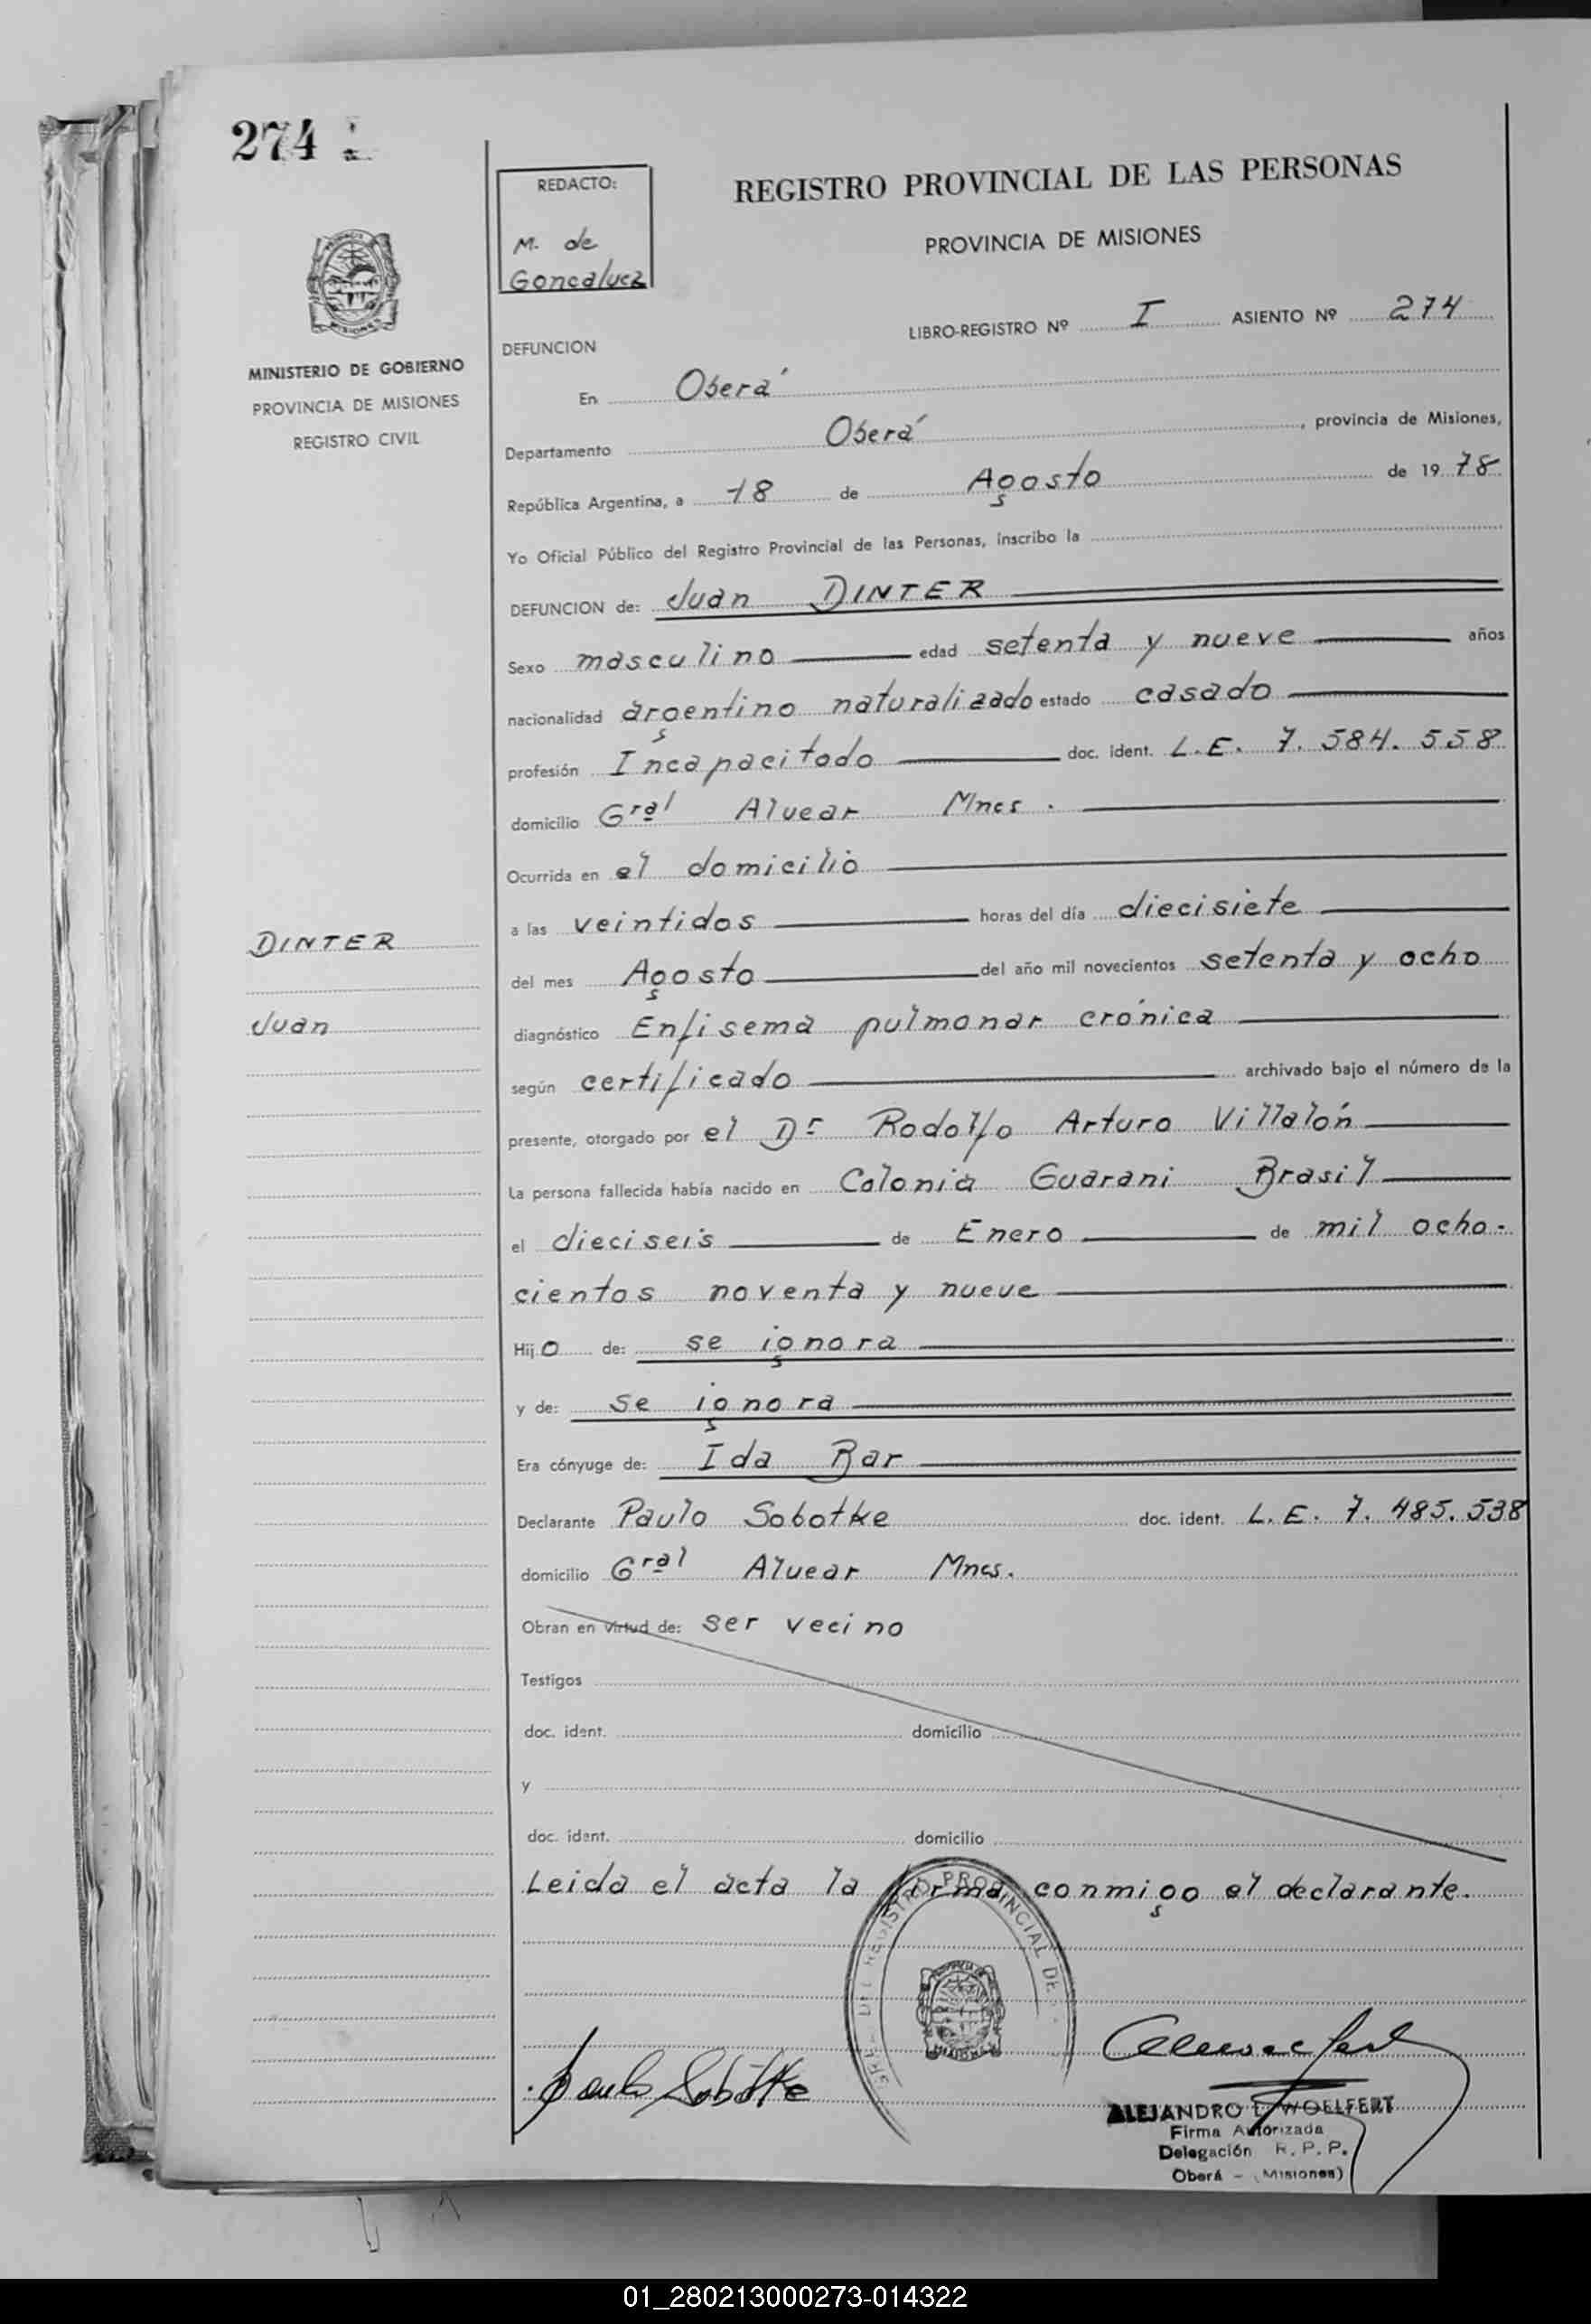 274
REDACTO:
M. de
Goncalvez
REGISTRO PROVINCIAL DE LAS PERSONAS
PROVINCIA DE MISIONES
MISIONES
MINISTERIO DE GOBIERNO
PROVINCIA DE MISIONES
REGISTRO CIVIL
LIBRO-REGISTRO Nº I ASIENTO Nº 274
DEFUNCION
En Oberá
Departamento Oberá, provincia de Misiones,
República Argentina, a 18 de Agosto de 1978
Yo Oficial Público del Registro Provincial de las Personas, inscribo la
DEFUNCION de: Juan DINTER
Sexo masculino edad setenta y nueve años
nacionalidad argentino naturalizado estado casado
profesión Incapacitado doc. ident. L.E. 7.584.558
domicilio Gral Alvear Mnes.
Ocurrida en el domicilio
a las veintidos horas del día diecisiete
del mes Agosto del año mil novecientos setenta y ocho
diagnóstico Enfisema pulmonar crónica
según certificado archivado bajo el número de la
presente, otorgado por el Dr Rodolfo Arturo Villalón
La persona fallecida había nacido en Colonia Guarani Brasil
el dieciseis de Enero de mil ocho-
cientos noventa y nueve
Hijo de: se ignora
y de: se ignora
Era cónyuge de: Ida Bar
Declarante Paulo Sobotke doc. ident. L.E. 7.485.538
domicilio Gral Alvear Mnes.
Obran en virtud de: ser vecino
Testigos
doc. ident. domicilio
y
doc. ident. domicilio
Leida el acta la firma conmigo el declarante.
DINTER
Juan
REGISTRO PROVINCIAL DE
Paulo Sobotke
ALEJANDRO E. WOELFERT
Firma Autorizada
Delegación R.P.P.
Oberá - (Misiones)
01_280213000273-014322